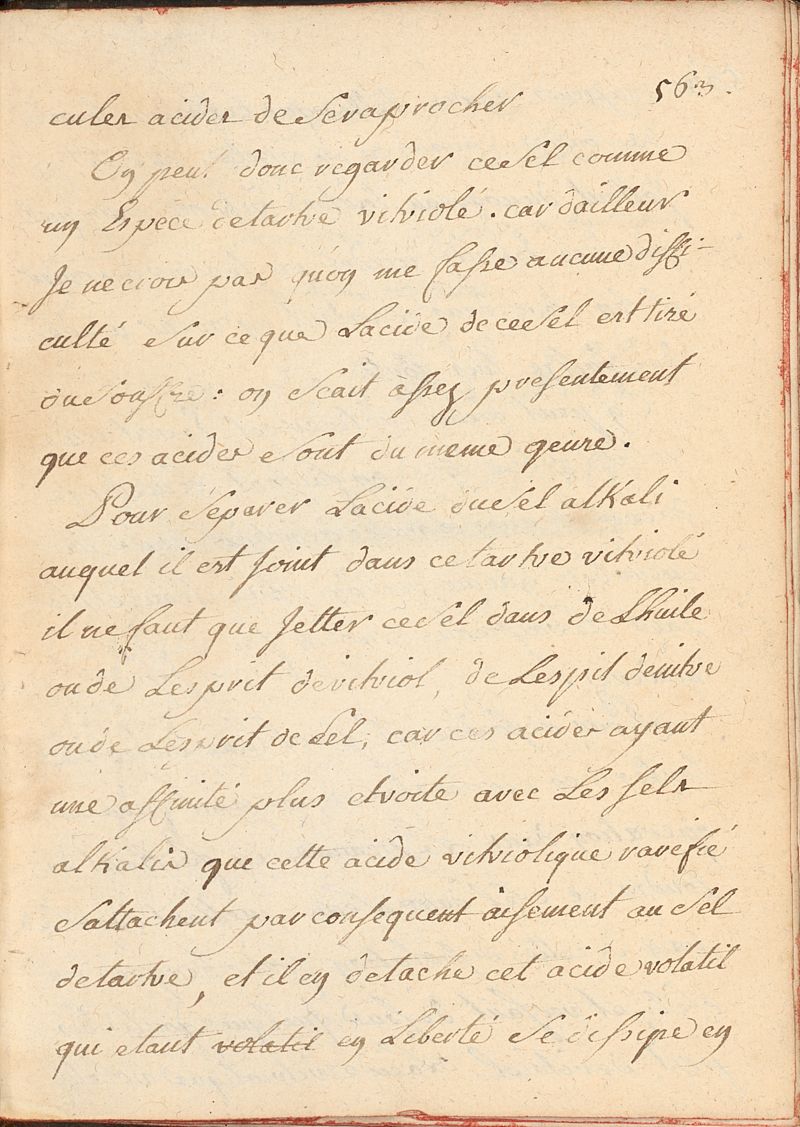 563.
cules acides de Seraprocher
On peut donc regarder ce Sel comme
un Espece de tartre vitriolé . car dailleur
Je ne crois pas qu'on me fasse aucune diffi-
culté Sur ce que Lacide de ce Sel est tiré
du Souffre : on Scait assez presentement
que ces acides Sont du meme genre .
Pour Séparer Lacide du Sel alKali
auquel il est Joint dans ce tartre vitriolé
il ne faut que Jetter ce Sel dans de Lhuile
ou de Lesprit de vitriol, de Lespit de nitre
ou de Lesprit de Sel, car ces acides ayant
une affinité plus etroite avec Les Sels
alKalis que cette acide vitriolique rarefié
Sattachent par consequent aisement au Sel
de tartre, et il en detache cet acide volatil
qui etant volatil en Liberté Se dissipe en